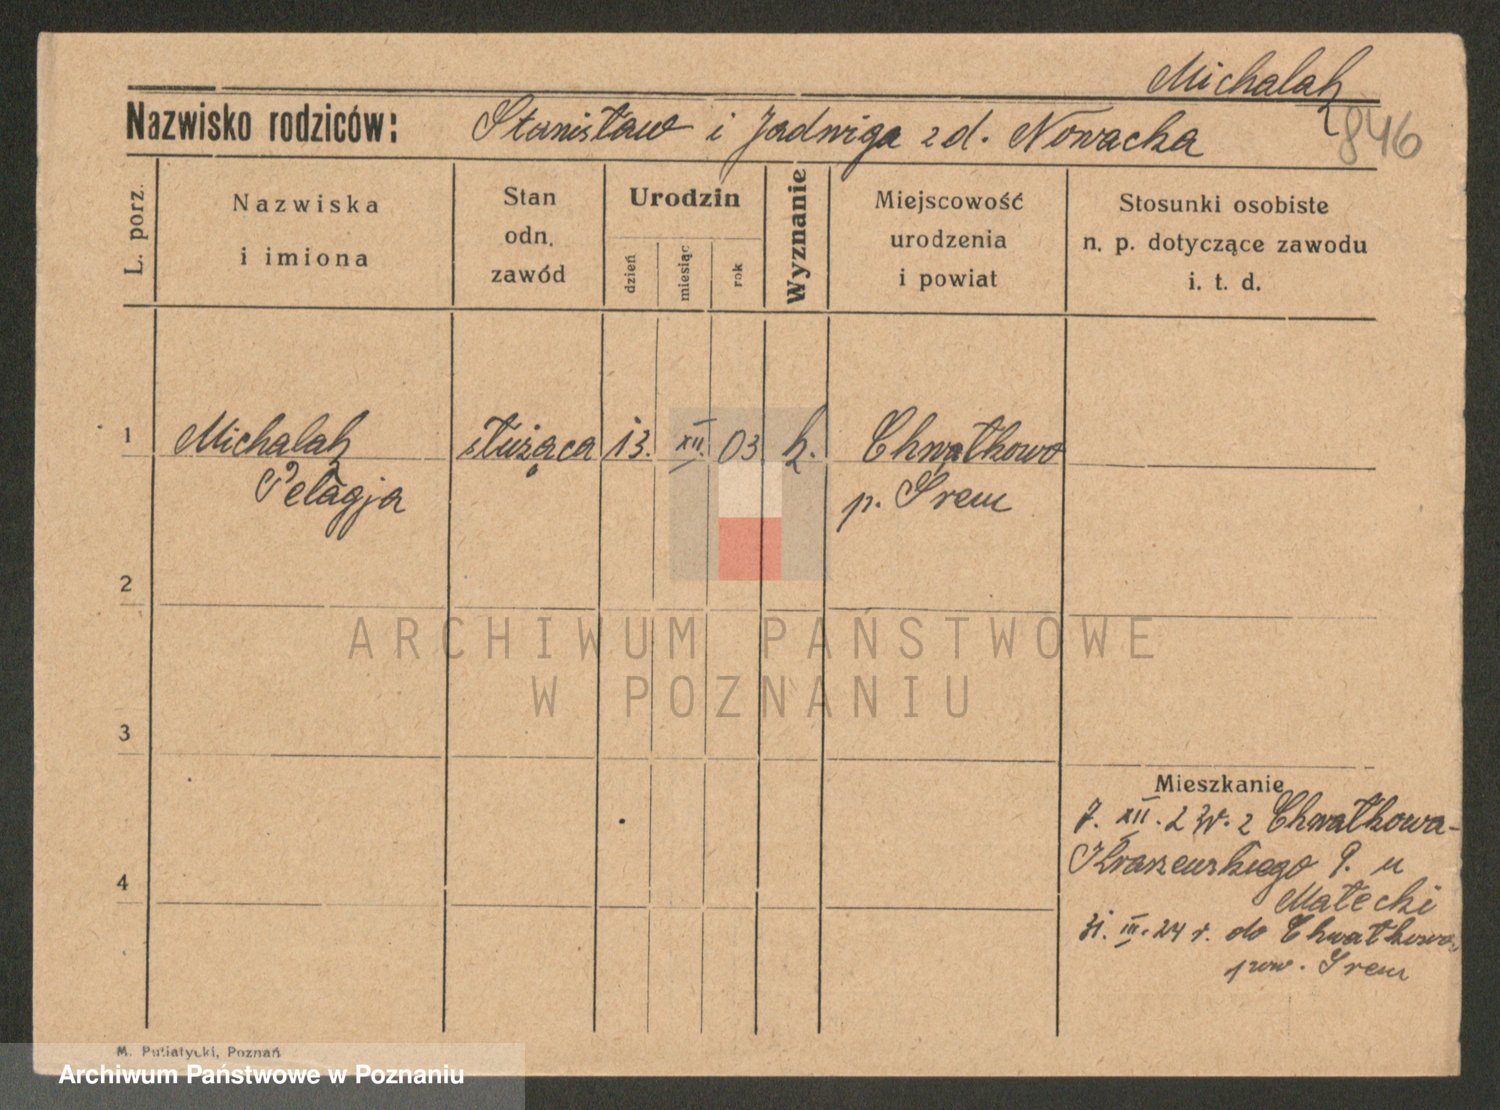 Michalak
Nazwisko rodziców: Stanisław i Jadwiga z d. Nowacka
846
L. porz.
Nazwiska
i imiona
Stan
odn.
zawód
Urodzin
dzień
miesiąc
rok
Wyznanie
Miejscowość
urodzenia
i powiat
Stosunki osobiste
n. p. dotyczące zawodu
i. t. d.
1 Michalak służąca 13. XII. 03 k. Chwałkowo
Pelagja p. Śrem
2
ARCHIWUM PAŃSTWOWE
W POZNANIU
3
Mieszkanie
7. XII. z Chwałkowa-
4
Kraszewskiego 9. u
Małecki
31. III. 24 r. do Chwałkowa
pow. Śrem
M. Putiatycki, Poznań
Archiwum Państwowe w Poznaniu